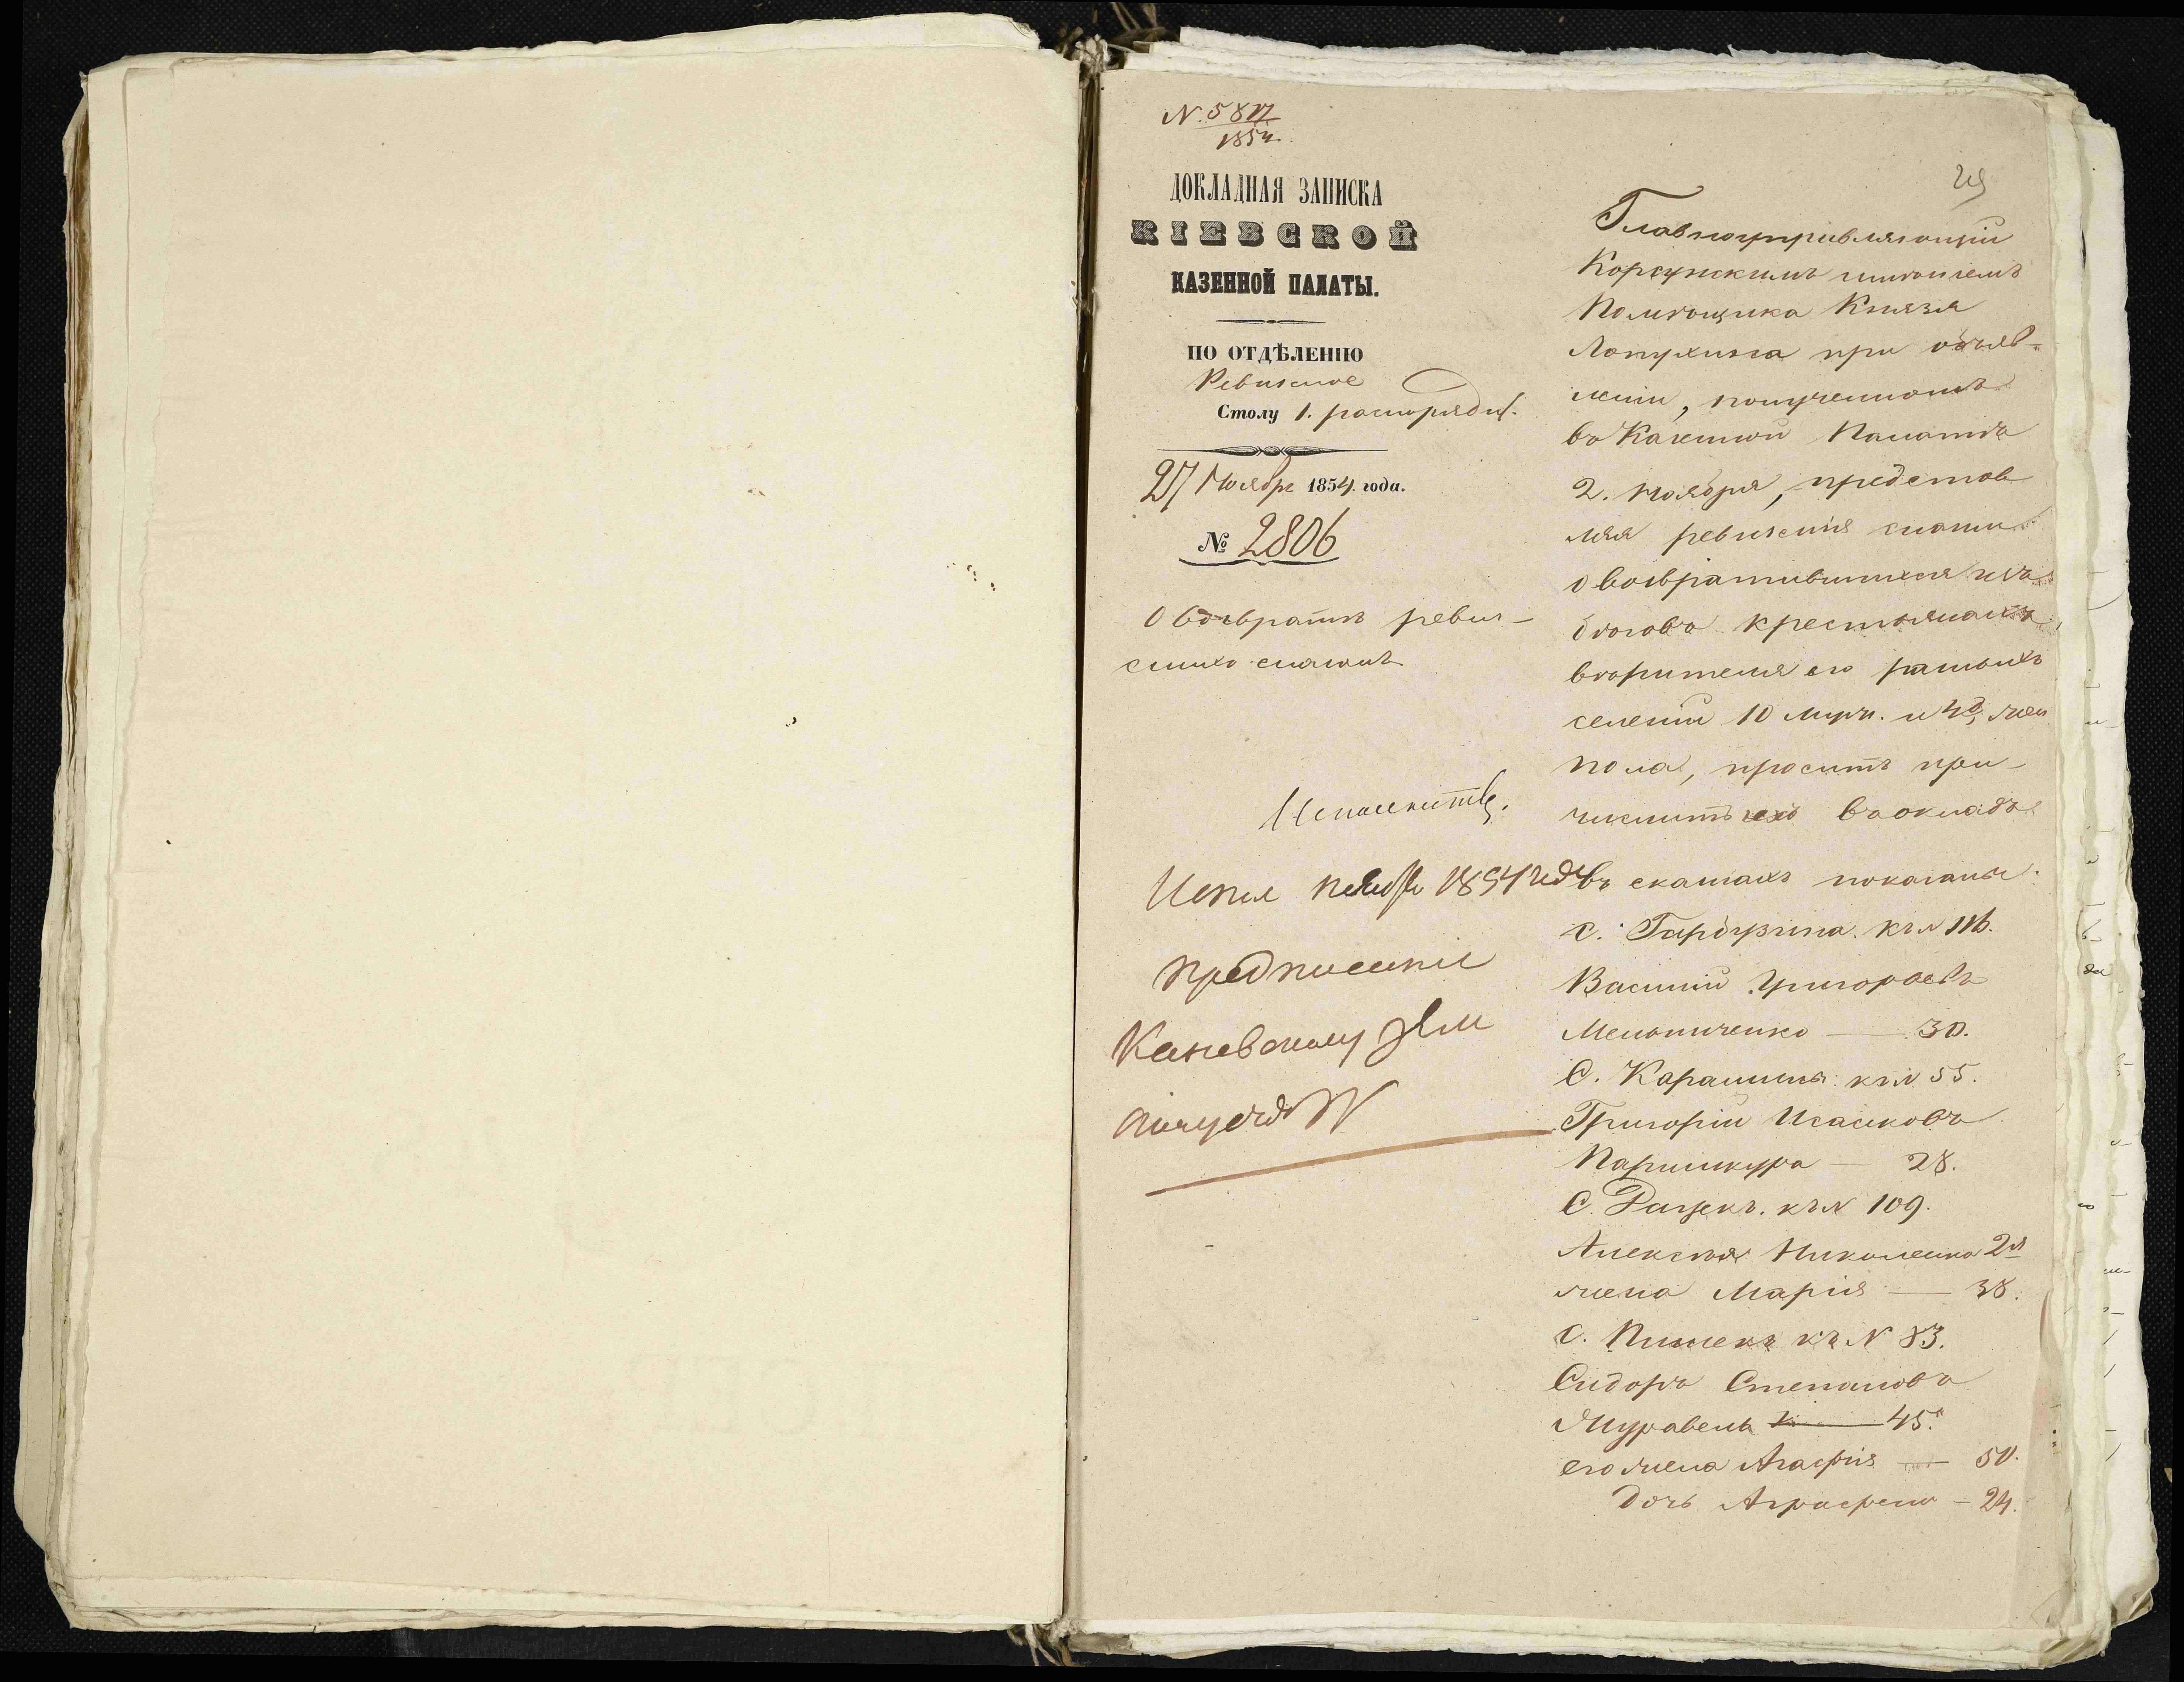 N. 58
1854
ДОКЛАДНАЯ ЗАПИСКА
КІЕВСКОЙ
КАЗЕННОЙ ПАЛАТЫ.
ПО ОТДѢЛЕНІЮ
Ревизское
Столу 1. распорядит.
27 Ноября 1854 года.
№ 2806
О возвратѣ ревиз-
скихъ сказокъ
Исполнить.
Испол ноября 1854 года
предписаніе
Каневскому
Главноуправляющій
Корсунскимъ имѣніемъ
Помѣщика Князя
Лопухина при объяв-
леніи, полученномъ
въ Казенной Палатѣ
2. ноября, представ
ляя ревизскія сказки
о возвратившихся изъ
бѣговъ крестьянахъ
вѣрителя его разныхъ
селеній 10 муж. и 4 жен
пола, проситъ при-
числить ихъ въ окладъ
въ сказкахъ показаны:
С. Гарбузина къ N 116.
Василій Григорьевъ
Мельниченко — 30.
С. Карашина къ N 55.
Григорій Исаковъ
Паршикура — 28.
С. къ N 109.
Алексѣя Николенка 2я
жена Марія — 38.
С. Пишекъ къ N 83.
Сидоръ Степановъ
Журавель — 45.
его жена Агафія — 50.
дочь Аграфена — 24.